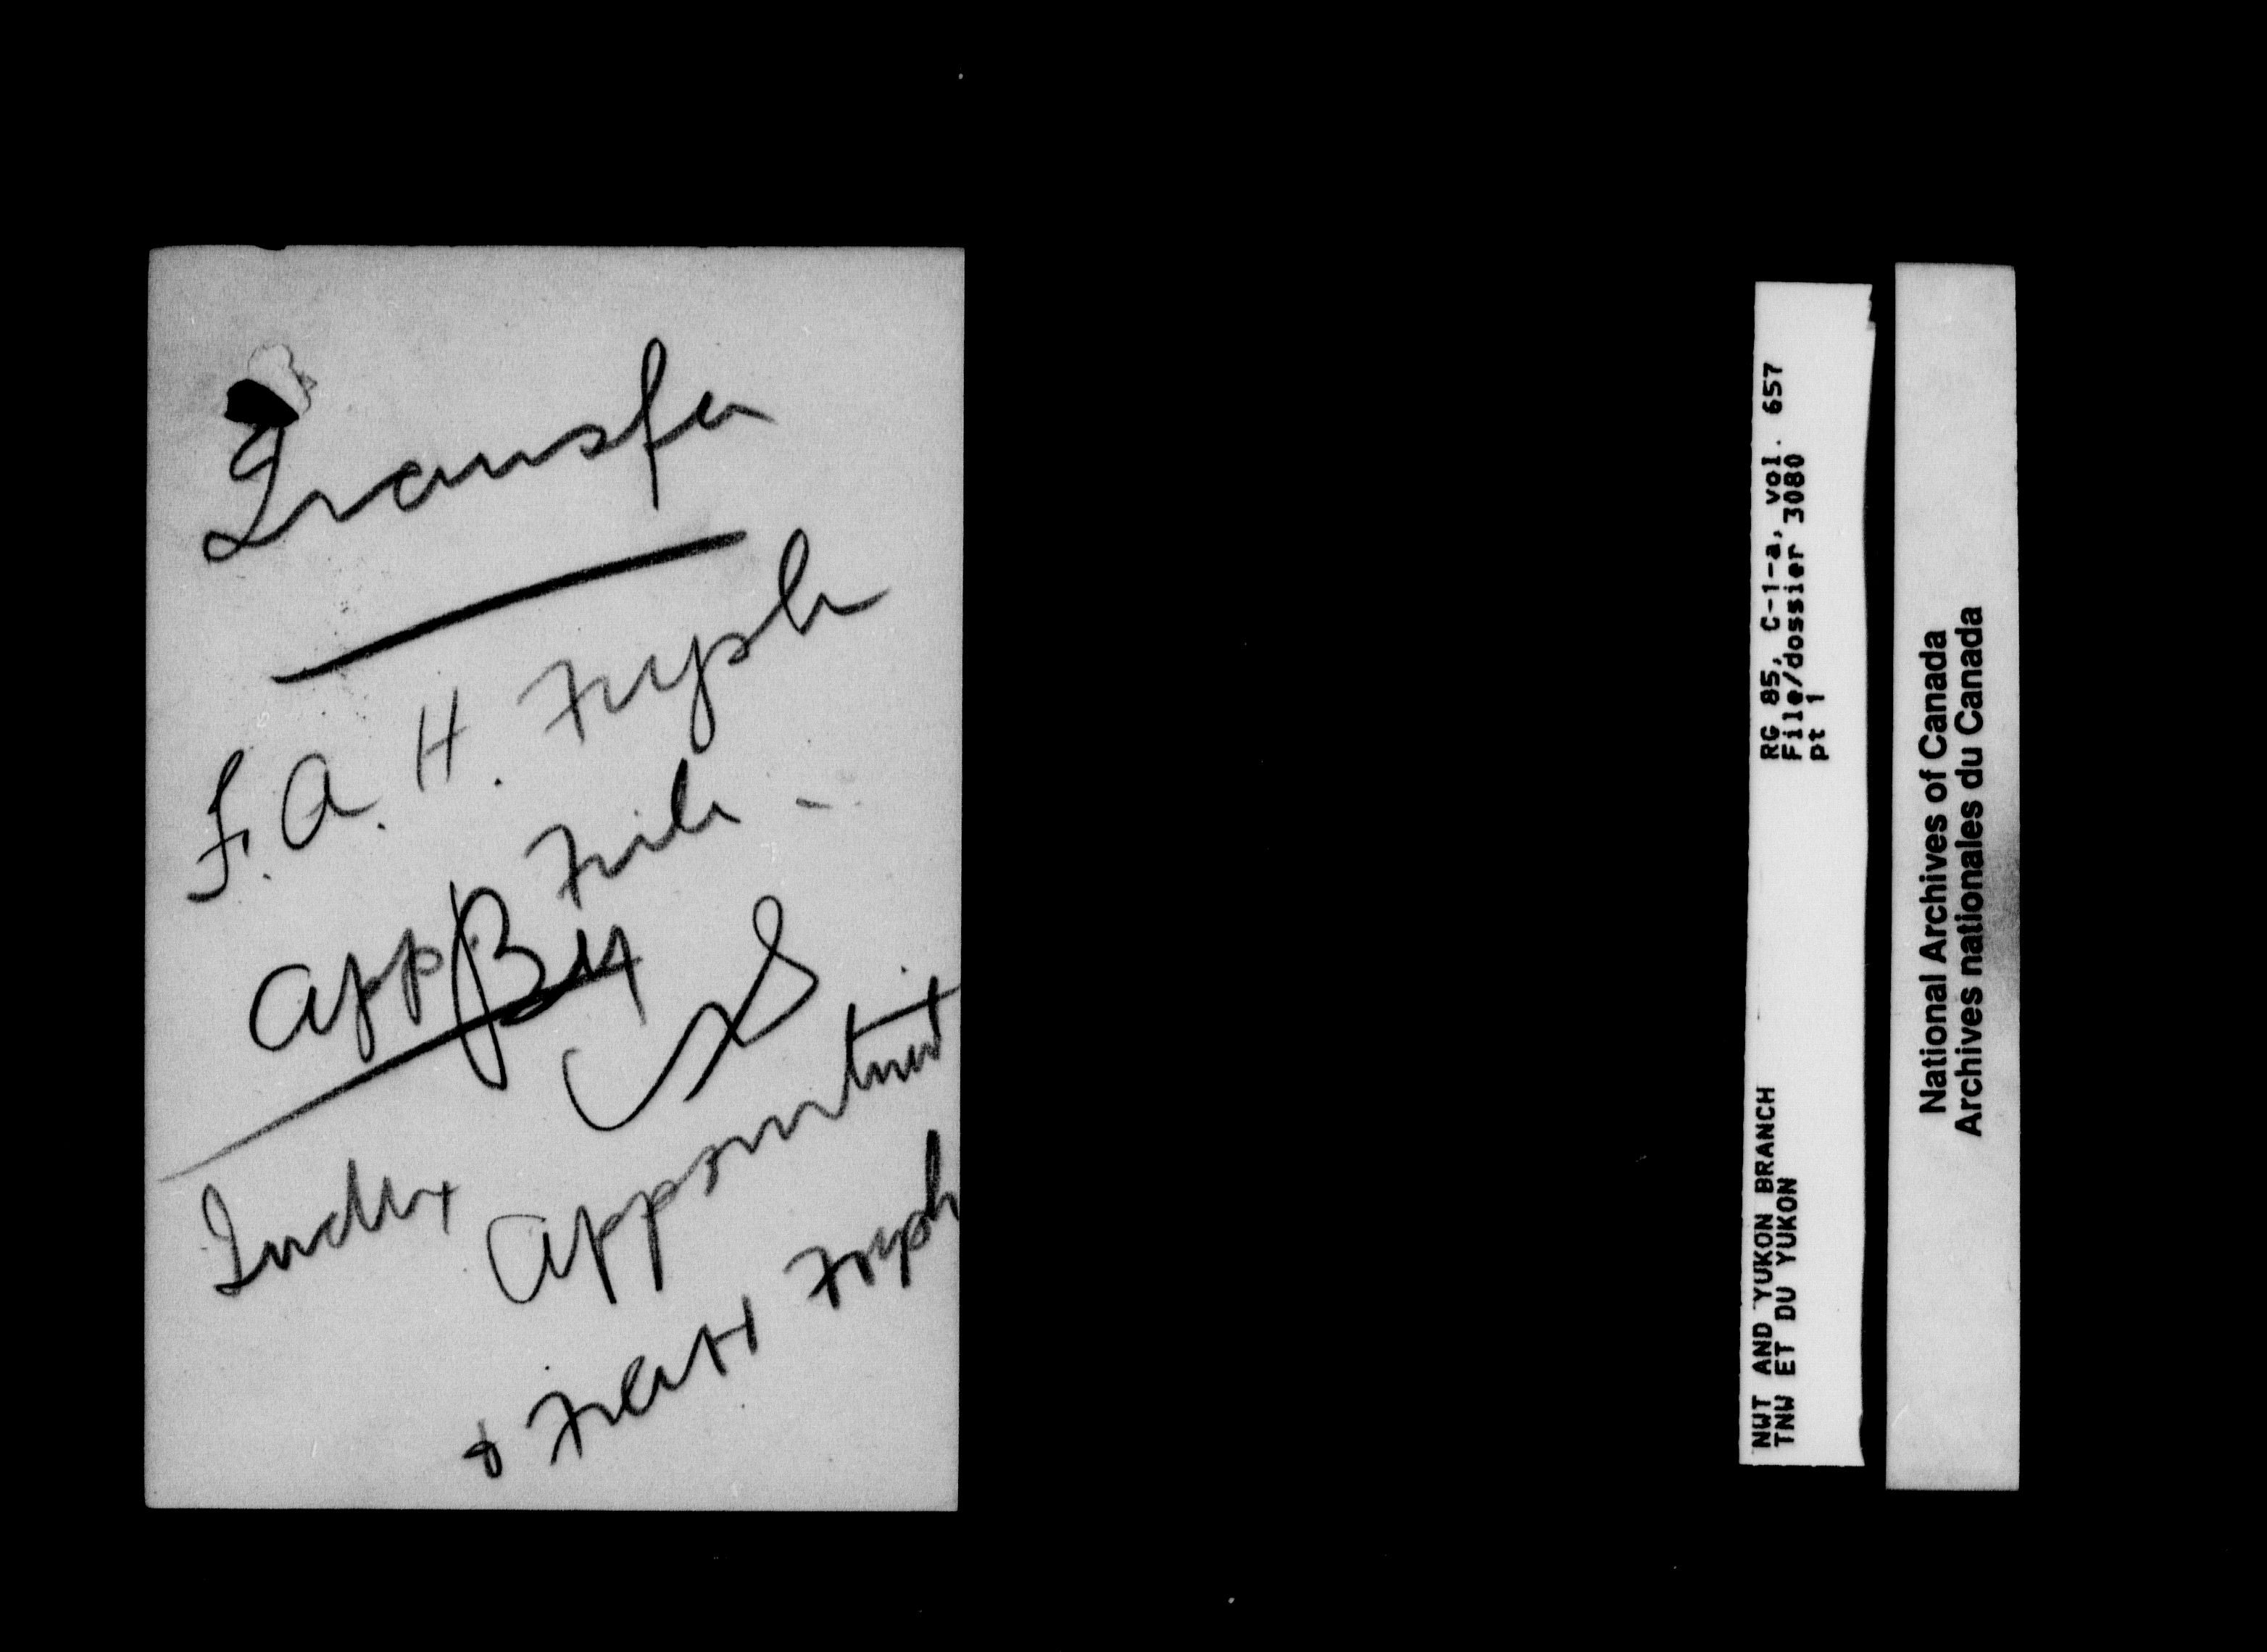 Transfer
F. A. H.
File -
App
Index Appointment
&
RG 85, C-1-a, vol. 657
File/dossier 3080
pt 1
NWT AND YUKON BRANCH
TNW ET DU YUKON
National Archives of Canada
Archives nationales du Canada